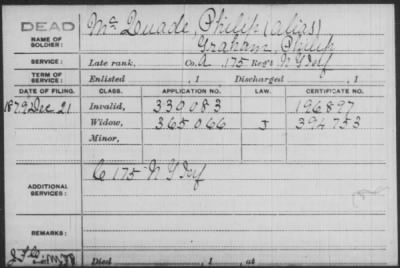 DEAD
NAME OF SOLDIER:
McQuade, Philip (alias)
Graham, Philip
SERVICE:
Late rank, Co. A 175 Reg't N Y Inf
TERM OF SERVICE:
Enlisted , 1 Discharged , 1
DATE OF FILING. CLASS. APPLICATION NO. LAW. CERTIFICATE NO.
1879 Dec 21 Invalid, 330083 196897
Widow, 365066 J 394753
Minor,
ADDITIONAL SERVICES:
C 175 N Y Inf
REMARKS:
Died , 1 , at